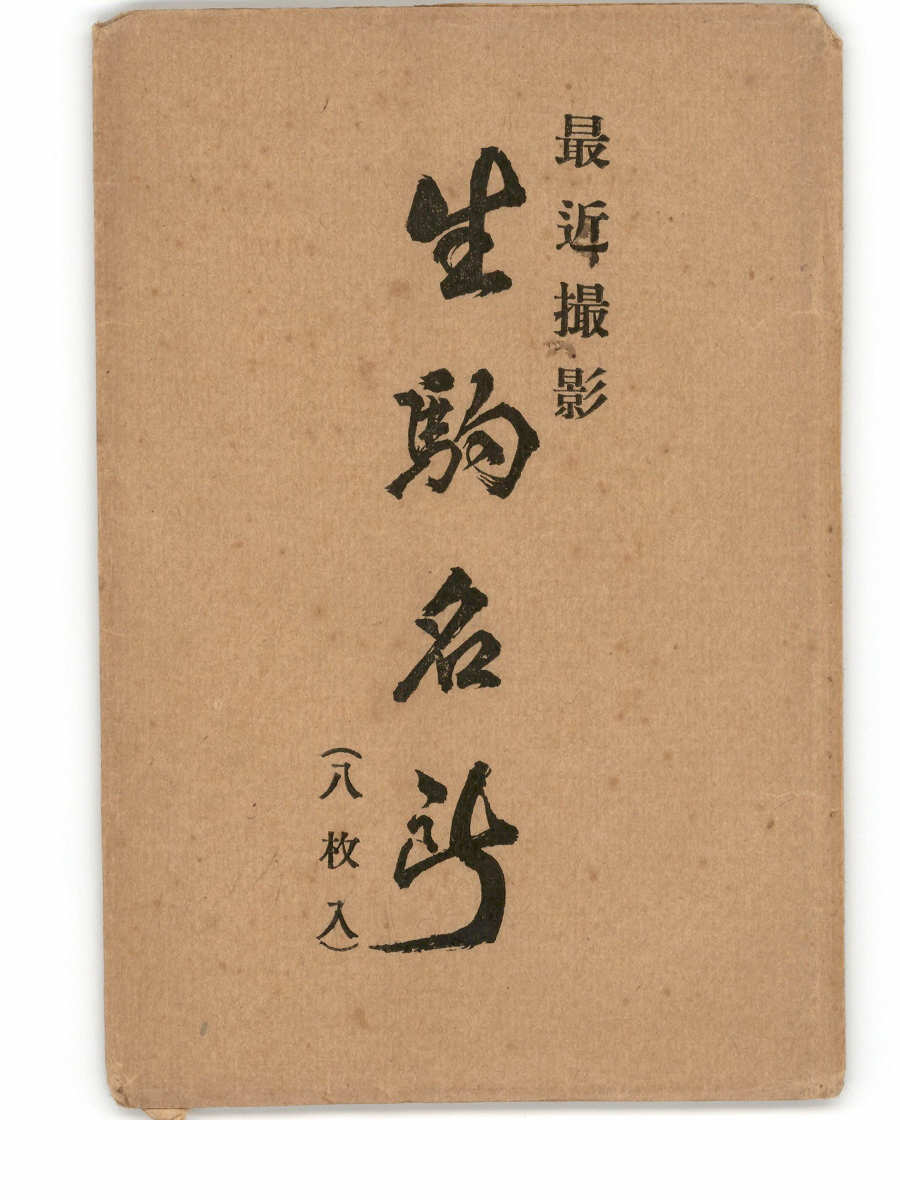 最近撮影
生駒名所
(八枚入)